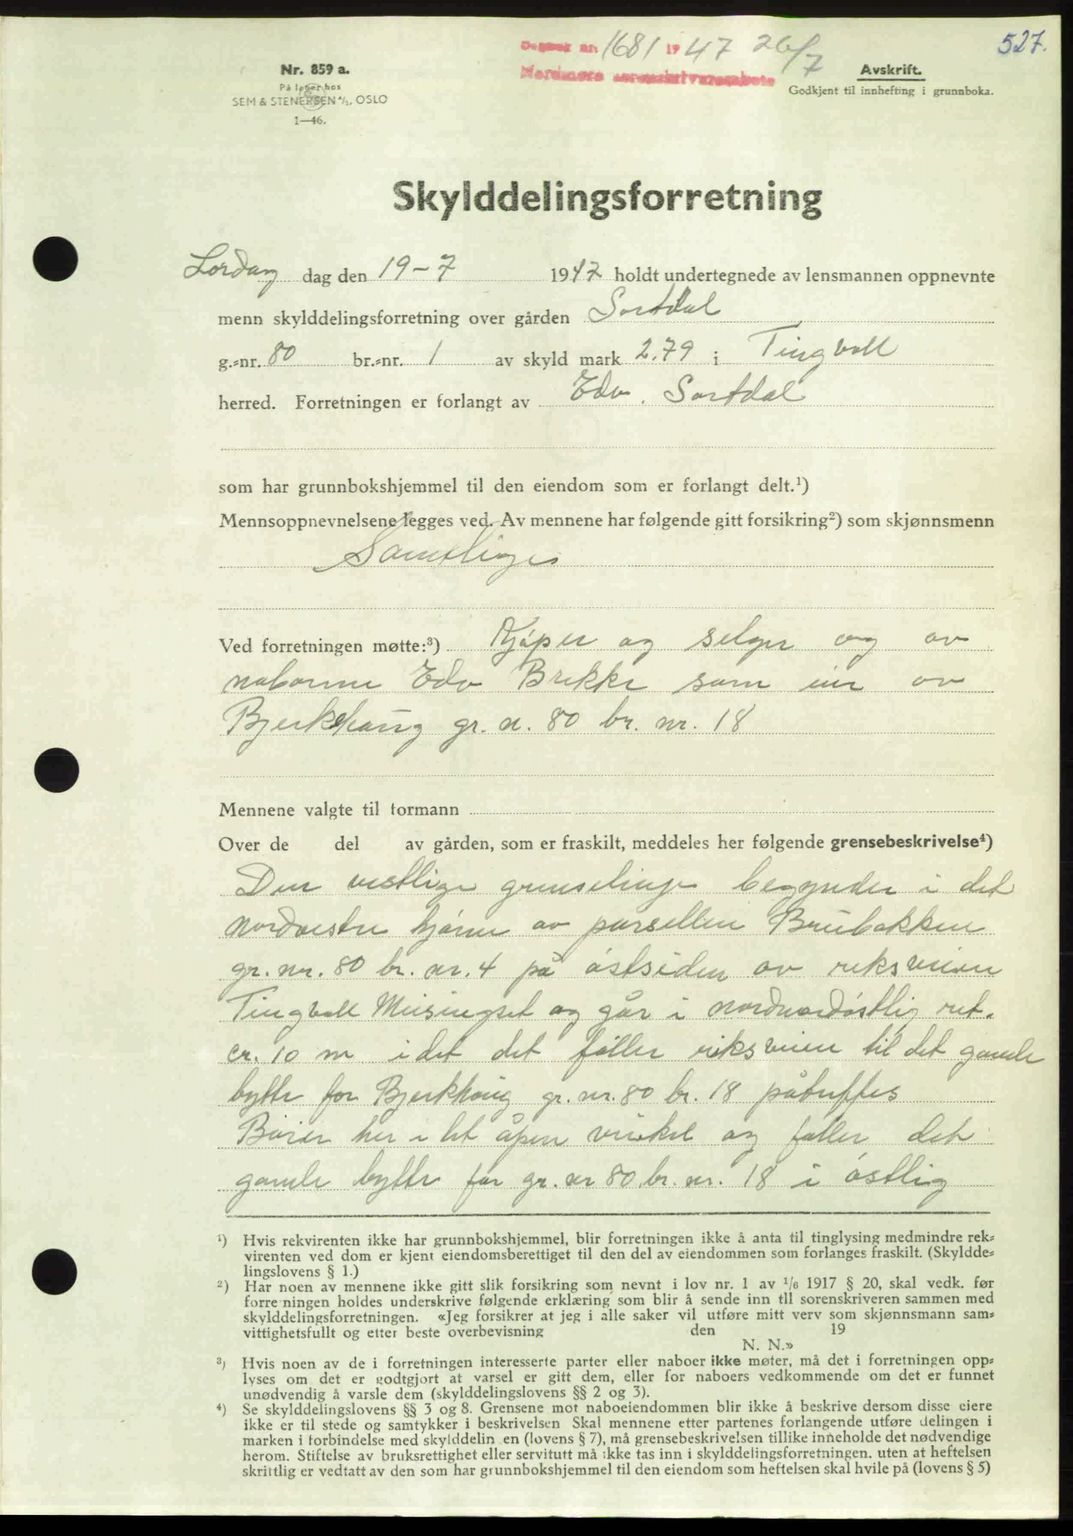 527.
Dagbok nr. 1681 1947 26/7
Nordmøre sorenskriverembete
Nr. 859 a.
På lager hos
SEM & STENERSEN A/S, OSLO
1—46.
Avskrift.
Godkjent til innhefting i grunnboka.
Skylddelingsforretning
Lordag dag den 19-7 1947 holdt undertegnede av lensmannen oppnevnte
menn skylddelingsforretning over gården Sortdal
g.-nr. 80 br.-nr. 1 av skyld mark 2,79 i Tingvoll
herred. Forretningen er forlangt av Edv. Sortdal
som har grunnbokshjemmel til den eiendom som er forlangt delt.¹)
Mennsoppnevnelsene legges ved. Av mennene har følgende gitt forsikring²) som skjønnsmenn
Samtlige
Ved forretningen møtte:³) Kjøper og selger og av
naboerne Edv Brekke som eier av
Bjerkhaug gr. n. 80 br. nr. 18
Mennene valgte til formann
Over de del av gården, som er fraskilt, meddeles her følgende grensebeskrivelse⁴)
Den vestlige grenselinje begynder i det
nordvestre hjørne av parsellen Brubakken
gr. nr. 80 br. nr. 4 på østsiden av riksveien
Tingvoll Meisingset og går i nordnordøstlig ret.
cr. 10 m idet det følger riksveien til det gamle
bytte for Bjerkhaug gr. nr. 80 br. 18 påtreffes
Bøier her i let åpen vinkel og følger det
gamle bytte for gr. nr 80 br. nr. 18 i østlig
¹) Hvis rekvirenten ikke har grunnbokshjemmel, blir forretningen ikke å anta til tinglysing medmindre rek-
virenten ved dom er kjent eiendomsberettiget til den del av eiendommen som forlanges fraskilt. (Skyldde-
lingslovens § 1.)
²) Har noen av mennene ikke gitt slik forsikring som nevnt i lov nr. 1 av 1/6 1917 § 20, skal vedk. før
forretningen holdes underskrive følgende erklæring som blir å sende inn til sorenskriveren sammen med
skylddelingsforretningen. «Jeg forsikrer at jeg i alle saker vil utføre mitt verv som skjønnsmann sam-
vittighetsfullt og etter beste overbevisning den 19
N. N.»
³) Hvis noen av de i forretningen interesserte parter eller naboer ikke møter, må det i forretningen opp-
lyses om det er godtgjort at varsel er gitt dem, eller for naboers vedkommende om det er funnet
unødvendig å varsle dem (skylddelingslovens §§ 2 og 3).
⁴) Se skylddelingslovens §§ 3 og 8. Grensene mot naboeiendommen blir ikke å beskrive dersom disse eiere
ikke er til stede og samtykker i beskrivelsen Skal mennene etter partenes forlangende utføre delingen i
marken i forbindelse med skylddelin en (lovens § 7), må grensebeskrivelsen tillike inneholde det nødvendige
herom. Stiftelse av bruksrettighet eller servitutt må ikke tas inn i skylddelingsforretningen, uten at heftelsen
skriftlig er vedtatt av den som har grunnbokshjemmel til den eiendom som heftelsen skal hvile på (lovens § 5)